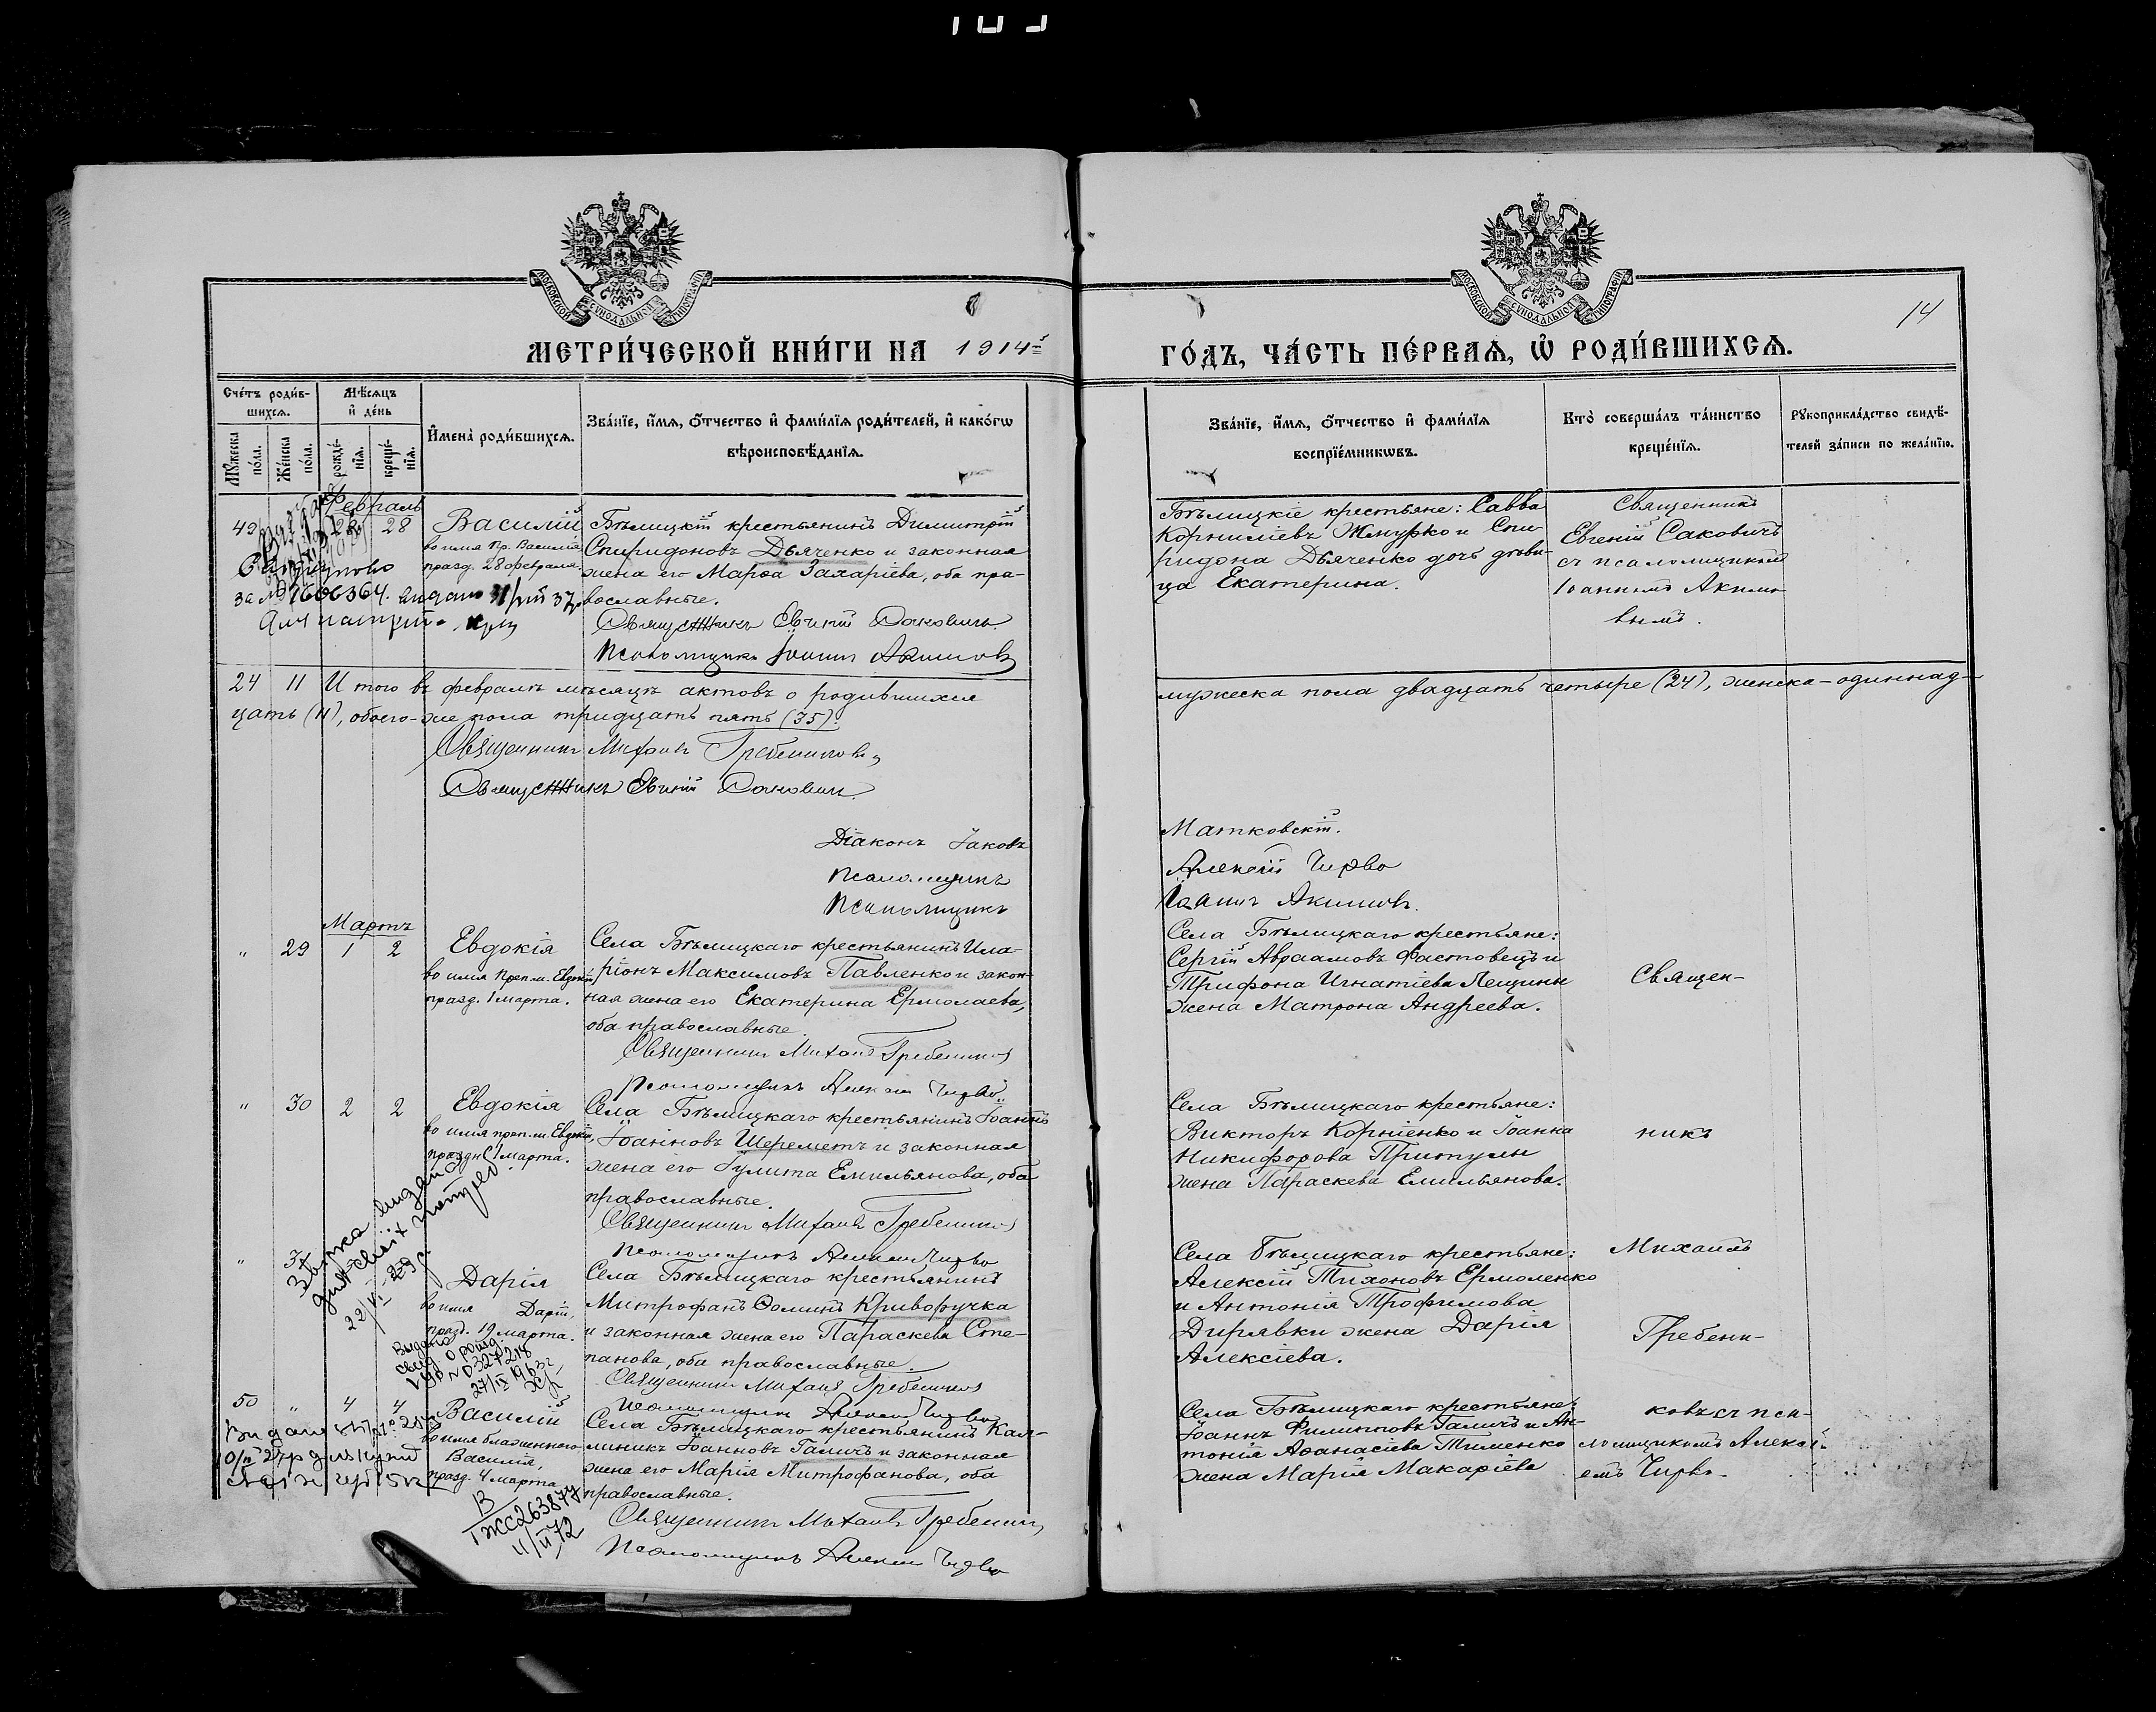 МЕТРИ́ЧЕСКОЙ КНИ́ГИ НА 1914й
ГО́ДЪ, ЧА́СТЬ ПЕ́РВАѦ, Ѡ РОДИ́ВШИХСѦ.
14
МОСКОВСКОЙ СѴНОДАЛЬНОЙ ТИПОГРАФІИ
МОСКОВСКОЙ СѴНОДАЛЬНОЙ ТИПОГРАФІИ
Сче́тъ роди́в-
шихсѧ.
Мѣ́сѧцъ
и҆ де́нь
Мꙋ́жеска по́ла.
Же́нска по́ла.
рожде́-нїѧ.
креще́-нїѧ.
И҆мена̀ роди́вшихсѧ.
Зва́нїе, и҆́мѧ, ѻ҆́тчество и҆ фами́лїѧ роди́телей, и҆ како́гѡ
вѣроисповѣ́данїѧ.
Зва́нїе, и҆́мѧ, ѻ҆́тчество и҆ фами́лїѧ
воспрїе́мникѡвъ.
Кто̀ соверша́лъ та́инство
креще́нїѧ.
Рꙋкоприкла́дство свидѣ́-
телей за́писи по жела́нїю.
Февраль
49 28 28
Василій
во имя пр. Василія,
празд. 28 февраля.
Бѣлицкій крестьянинъ Димитрій
Спиридоновъ Дьяченко и законная
жена его Марѳа Захаріева, оба пра-
вославные.
Священникъ Евгеній Саковичъ
Псаломщикъ Іоаннъ Акимовъ
Бѣлицкіе крестьяне: Савва
Корниліевъ Жмурко и Спи-
ридона Дьяченко дочь дѣви-
ца Екатерина.
Священникъ
Евгеній Саковичъ
съ псаломщикомъ
Іоанномъ Акимо-
вымъ.
24 11 Итого въ февралѣ мѣсяцѣ актовъ о родившихся
мужеска пола двадцать четыре (24), женска - одиннад-
цать (11), обоего-же пола тридцать пять (35).
Священникъ Михаилъ Гребениковъ
Священникъ Евгеній Саковичъ
Діаконъ Іаковъ Матковскій.
Псаломщикъ Алексій Чирво
Псаломщикъ Іоаннъ Акимовъ.
Мартъ
" 29 1 2
Евдокія
во имя преп.м. Евдокіи,
празд. 1 марта.
Села Бѣлицкаго крестьянинъ Ила-
ріонъ Максимовъ Павленко и закон-
ная жена его Екатерина Ермолаева,
оба православные.
Священникъ Михаилъ Гребениковъ
Псаломщикъ Алексій Чирво
Села Бѣлицкаго крестьяне:
Сергій Авраамовъ Фастовецъ и
Трифона Игнатіева Лещины
жена Матрона Андреева.
Священ-
" 30 2 2
Евдокія
во имя преп.м. Евдокіи,
праздн. 1 марта.
Села Бѣлицкаго крестьянинъ Іоаннъ
Іоанновъ Шереметъ и законная
жена его Іулита Емильянова, оба
православные.
Священникъ Михаилъ Гребениковъ
Псаломщикъ Алексій Чирво
Села Бѣлицкаго крестьяне:
Викторъ Корніенко и Іоанна
Никифорова Притулы
жена Параскева Емильянова.
никъ
" 31
Дарія
во имя Даріи,
празд. 19 марта.
Села Бѣлицкаго крестьянинъ
Митрофанъ Ѳоминъ Криворучка
и законная жена его Параскева Сте-
панова, оба православные.
Священникъ Михаилъ Гребениковъ
Псаломщикъ Алексій Чирво
Села Бѣлицкаго крестьяне:
Алексій Тихоновъ Ермоленко
и Антонія Трофимова
Дирявки жена Дарія
Алексіева.
Михаилъ
Гребени-
50 " 4 4
Василій
во имя блаженного
Василія,
празд. 4 марта
Села Бѣлицкаго крестьянинъ Кал-
линикъ Іоанновъ Галичъ и законная
жена его Марія Митрофанова, оба
православные.
Священникъ Михаилъ Гребениковъ
Псаломщикъ Алексій Чирво
Села Бѣлицкаго крестьяне:
Іоаннъ Филипповъ Галичъ и Ан-
тонія Аѳанасіева Тименко
жена Марія Макаріева
ковъ съ пса-
ломщикомъ Алексі-
емъ Чирво.